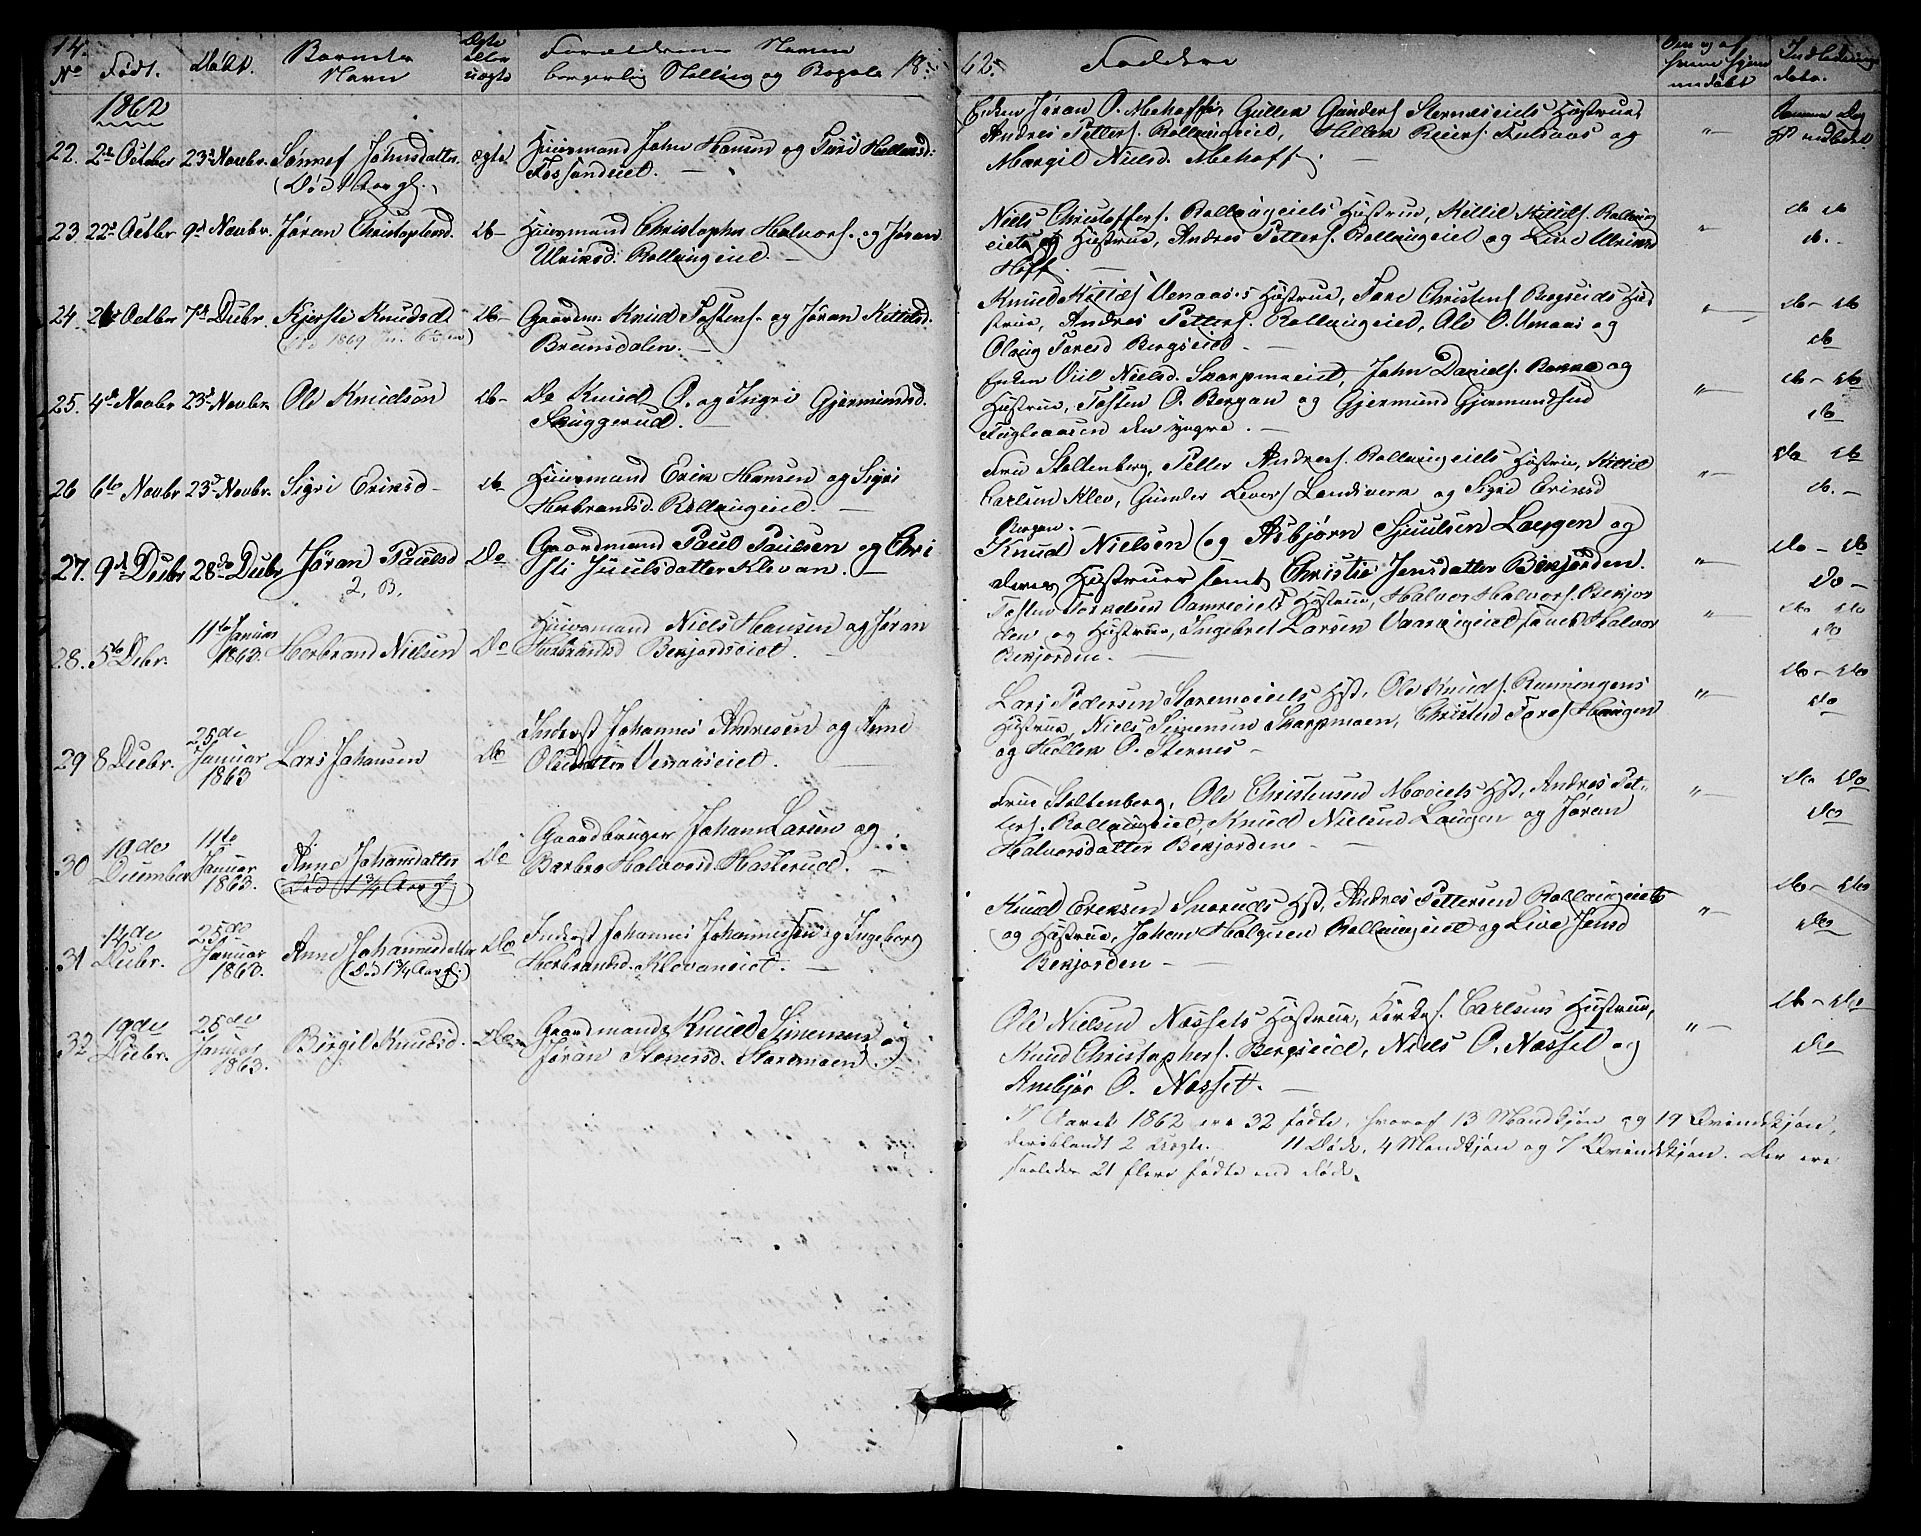 14.
No Født. Døbt. Barnets Navn Ægte eller uægte Forældrenes Navne borgerlig Stilling og Bopæl 18
62. Faddere Om og af hvem hjemmedøbt
1862
22. 2den October 23de Novbr. Sønnef Johnsdatter ægte Huusmand John Hansen og Turi
(Død 1 Aar gl.)
Enken Jøran O. Mehoff, Gullek Gunders. Sternæseiets Hustrue,
Andres Petters. Rollaugeiet, og
Margit Nielsd. Mehoff. —
23. 22de Octbr 9de Novbr. Jøran Christophersd. do Huusmand Christopher Halvors. og Jøran
Ulriksd. Rollaugeiet. —
Niels Christoffers. Rollaugeiets Hustrue, Kittil Kittils. Rollaug
eiets og Hustrue, Andres Petters. Rollaugeiet og Live Ulriksd
Hoff. —
do do
do. —
24. Octbr 7de Decbr. Kjersti Knudsd do Gaardm. Knud Tostens. og Jøran Kittilsd.
Bruunsdalen. —
Knud Kittils. Venaases Hustrue, Tore Christens. Bergseiets Hu
strue, Andres Petters. Rollaugeiet, Ole O. Venaas og
Olaug Toresd Bergseiet. —
do — do
do
25. 4de Novbr 23de Novbr. Ole Knudsøn do Do Knud O. og Ingri Gjermundsd.
Skuggerud. —
Enken Nielsd. Skarpmoeiet, John Daniels. og
Hustrue, Tosten O. Bergan og Gjermund Gjermundsen
Fugleaasen den yngre. —
do — do
do
26 6te Novbr 23de Novbr. Sigri Eriksd do Huusmand Erik Hansen og Sigri
Herbrandsd. Rollaugeiet. —
Fru Stoltenberg, Petter Anders. Rollaugeiets Hustrue, Kittil
Carlsen Klev, Gunder Levors. Landiverk og Sigri Eriksd
Bergan. —
do do
do. —
27. 9de Decbr 28de Decbr Jøran Paulsd Do Gaardmand Paul Paulsen og Chri
2, B. sti Juulsdatter Klevan. —
Knud Nielsen (og Asbjørn Sjuulsen Laugen og
deres Hustruer samt Christie Jensdatter Bekjorden.
Do — Do
Do —
28. 5te Debr. 11te Januar 1863. Herbrand Nielsen Do Huusmand Niels Hansen og Jøran
Herbrandsd Bekjordseiet. —
Tosten Torkelsen Hustrue, Halvor Halvors. Bekjor
den og Hustrue, Ingebret Larsen Halvor
Bekjorden. —
do do
do
29 8 Decbr. 25de Januar 1863 Lars Johansen Do Inderst Johannes Andresen og Anne
Olsdatter Venaaseiet. —
Lars Pedersen Staremoeiets Hst, Ole Knuds. Ranningens
Hustrue, Niels Simensen Skarpmoen, Christen Tores. Haugen
og Hellek O. Sternes —
do — do
do
30 10de December 11te Januar 1863. Anne Johansdatter Do Gaardbruger Johan Larsen og
(Død 1 3/4 Aar gl) Barbro Halvorsd Hasterud. —
Frue Stoltenberg, Ole Christensen Moeiets Hst, Andres Pet-
ters. Rollaugeiet, Knud Nielsen Laugen og Jøran
Halvorsdatter Bekjordene —
Do Do
Do
31 14de Decbr. 25de Januar 1863. Anne Johannesdatter Do Inderst Johannes Johannesen og Ingeborg
(Død 1 3/4 Aar gl.) Herbrandsd. Klevaneiet. —
Knud Eriksen Hst, Andres Pettersen Rollaugeiets
og Hustrue, Johan Halgrsen Rollaugeiet og Live Jensd
Bekjorden —
do — do
do
32 19de Decbr. 25de Januar 1863. Birgit Knudsd. Do Gaardmand Knud Simensen og
Jøran Stenersd. Staremoen. —
Ole Nielsen Næssets Hustrue, Kirkes. Carlsens Hustrue,
Knud Christophers. Bergseiet, Niels O. Næsset og
Anebjør O. Næsset. —
do — do
do
I Aaret 1862 ere 32 fødte, hvoraf 13 Mandkjøn og 19 Qvindekjøn,
deriblandt 2 Uægte. 11 Døde, 4 Mandkjøn og 7 Qvindekjøn. Der ere
saaledes 21 flere fødte end døde.